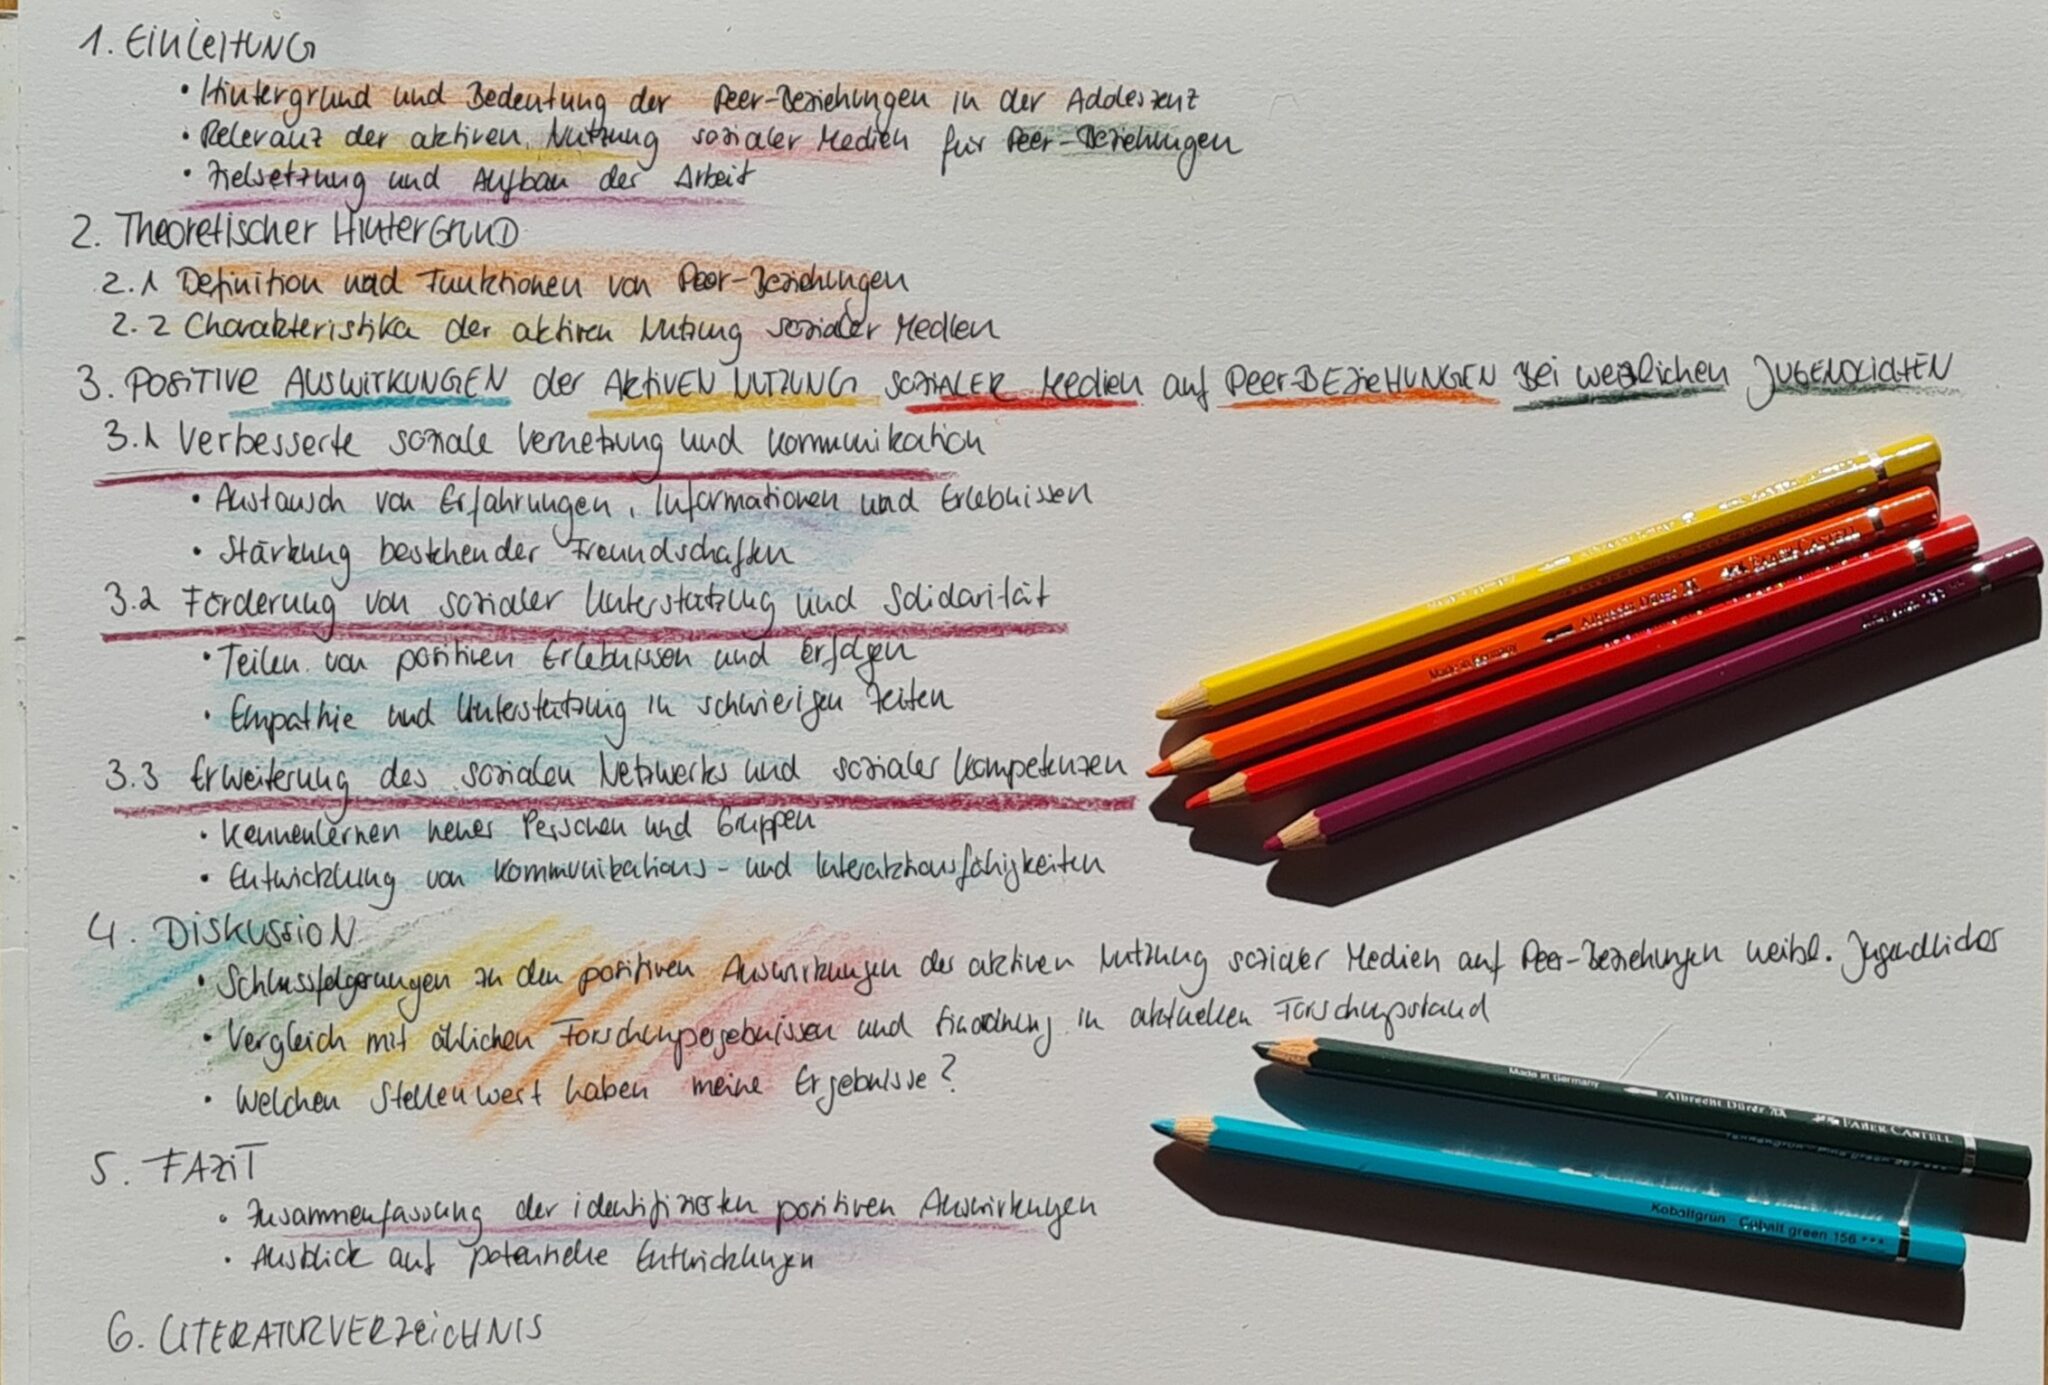 1. EINLEITUNG
• Hintergrund und Bedeutung der Peer-Beziehungen in der Addeszenz
• Relevanz der aktiven Nutzung sozialer Medien für Peer-Beziehungen
• Zielsetzung und Aufbau der Arbeit
2. Theoretischer Hintergrund
2.1 Definition und Funktionen von Peer-Beziehungen
2.2 Charakteristika der aktiven Nutzung sozialer Medien
3. POSITIVE AUSWIRKUNGEN der AKTIVEN NUTZUNG SOZIALER Medien auf Peer-BEZIEHUNGEN Bei weiblichen JUGENDLICHEN
3.1 Verbesserte soziale Vernetzung und Kommunikation
• Austausch von Erfahrungen, Informationen und Erlebnissen
• Stärkung bestehender Freundschaften
3.2 Förderung von sozialer Unterstützung und Solidarität
• Teilen von positiven Erlebnissen und Erfolgen
• Empathie und Unterstützung in schwierigen Zeiten
3.3 Erweiterung des sozialen Netzwerks und sozialer Kompetenzen
• Kennenlernen neuer Personen und Gruppen
• Entwicklung von Kommunikations- und Interaktionsfähigkeiten
4. DISKUSSION
• Schlussfolgerungen zu den positiven Auswirkungen der aktiven Nutzung sozialer Medien auf Peer-Beziehungen weibl. Jugendlicher
• Vergleich mit ählichen Forschungsergebnissen und Einordnung in aktuellen Forschungsstand
• Welchen Stellenwert haben meine Ergebnisse?
5. FAZIT
• Zusammenfassung der identifizierten positiven Auswirkungen
• Ausblick auf potenzielle Entwicklungen
6. LITERATURVERZEICHNIS
Made in Germany Albrecht Dürer FABER-CASTELL
Made in Germany Albrecht Dürer FABER-CASTELL
Kobaltgrün · Cobalt green 156 ***